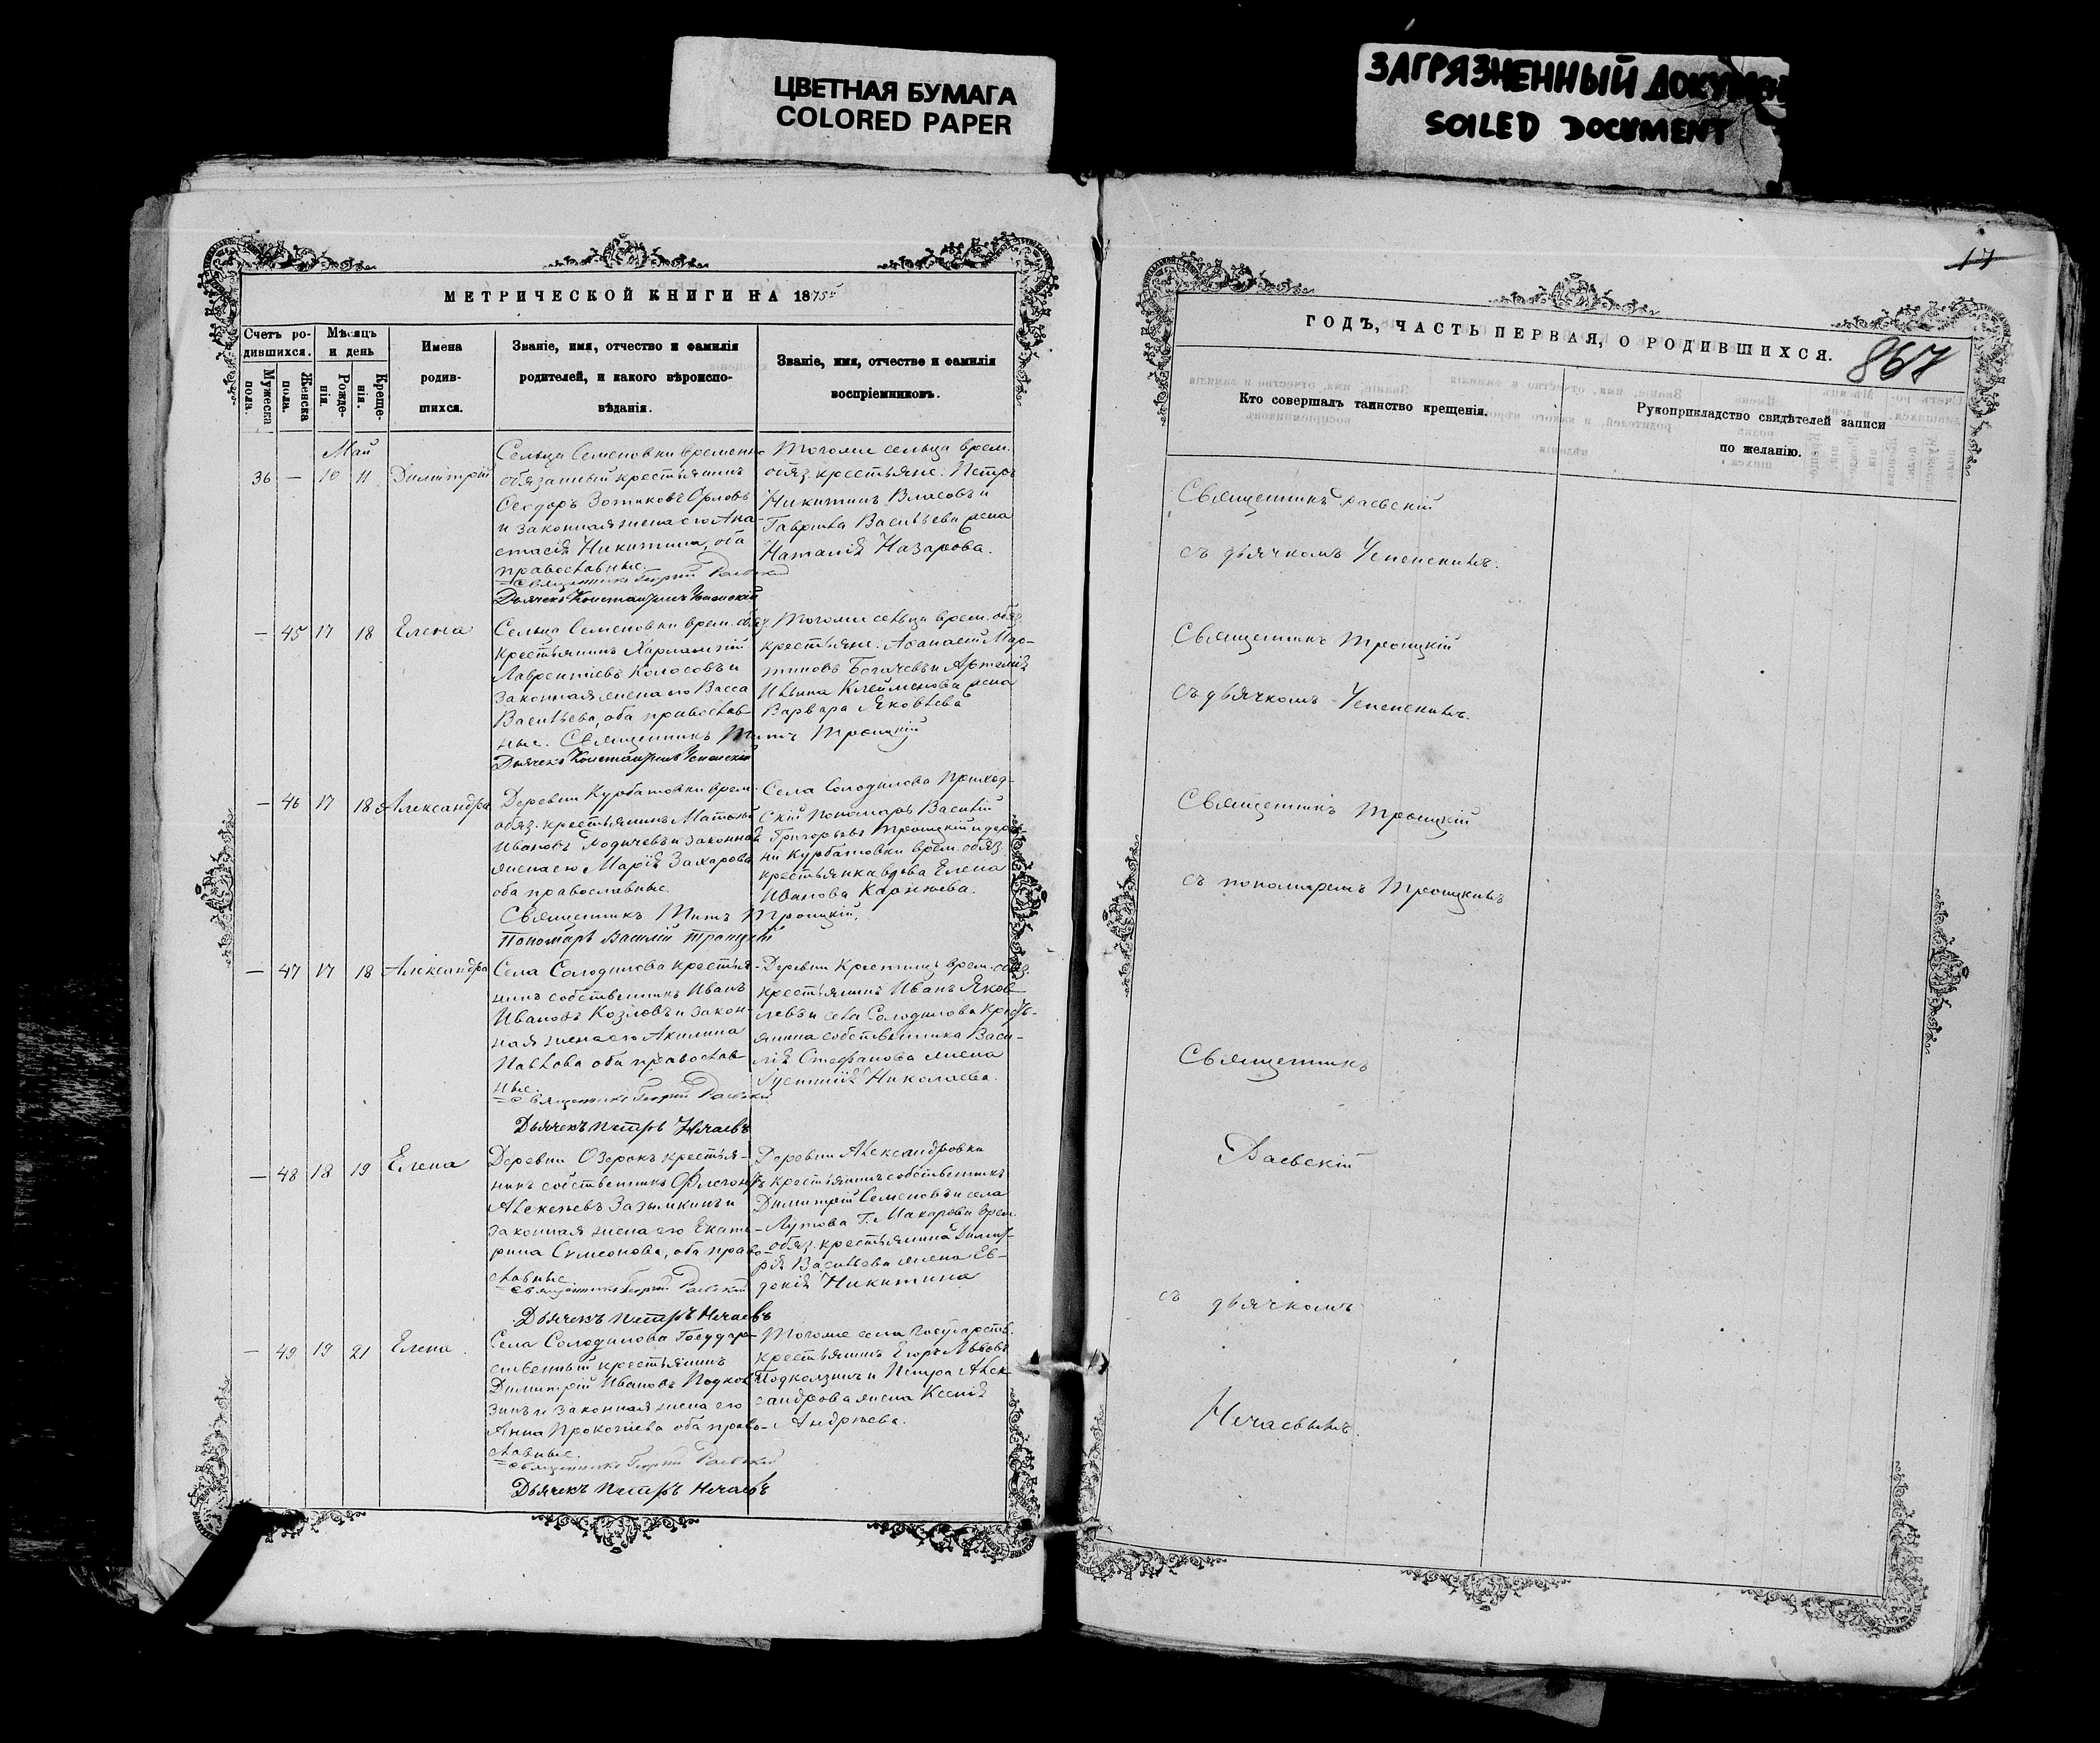 ЦВЕТНАЯ БУМАГА
COLORED PAPER
ЗАГРЯЗНЕННЫЙ
SOILED DOCUMENT
МЕТРИЧЕСКОЙ КНИГИ НА 1875й
Счетъ ро-
дившихся.
Мужеска
пола.
Женска
пола.
Мѣсяцъ
и день
Рожде-
нія.
Креще-
нія.
Имена
родив-
шихся.
Званіе, имя, отчество и фамилія
родителей, и какого вѣроиспо-
вѣданія.
Званіе, имя, отчество и фамилія
воспріемниковъ.
Май
36 — 10 11 Димитрій
Сельца Семеновки временно
обязанный крестьянинъ
Ѳеодоръ Зотиковъ Орловъ
и законная жена его Ана-
стасія Никитина, оба
православные.
Священникъ Георгій Раевскій
Дьячекъ Константинъ Успенскій
Тогоже сельца врем.
обяз. крестьяне: Петръ
Никитинъ Власовъ и
Гаврила Васильева жена
Наталія Назарова.
— 45 17 18 Елена
Сельца Семеновки врем. обяз.
крестьянинъ Харлампій
Лаврентіевъ Колосовъ и
законная жена его Васса
Васильева, оба православ-
ные. Священникъ Титъ Троицкій
Дьячекъ Константинъ Успенскій
Тогоже сельца врем. обяз.
крестьяне: Аѳанасій Мар-
тиновъ Богачевъ и Артемія
Ильина Клейменова жена
Варвара Яковлева
— 46 17 18 Александра
Деревни Курбатовки врем.
обяз. крестьянинъ Матвѣй
Ивановъ Родичевъ и законная
жена его Марія Захарова
оба православные.
Священникъ Титъ Троицкій.
Пономарь Василій Троицкій
Села Солодилова приход-
скій пономарь Василій
Григорьевъ Троицкій и дерев-
ни Курбатовки врем. обяз.
крестьянка вдова Елена
Иванова
— 47 17 18 Александра
Села Солодилова крестья-
нинъ собственникъ Иванъ
Ивановъ Козловъ и закон-
ная жена его Акилина
Павлова оба православ-
ные.
Священникъ Георгій Раевскій
Дьячекъ Петръ Нечаевъ
Деревни врем. обяз.
крестьянинъ Иванъ Яков-
левъ и села Солодилова кресть-
янина собственника Васи-
лія Стефанова жена
Николаева.
— 48 18 19 Елена
Деревни Озерокъ крестья-
нинъ собственникъ Флегонтъ
Алексѣевъ Зазыкинъ и
законная жена его Екате-
рина Симеонова, оба право-
славные
Священникъ Георгій Раевскій
Дьячекъ Петръ Нечаевъ
Деревни Александровки
крестьянинъ собственникъ
Димитрій Семеновъ и села
Лутова Г. Макарова врем.
обяз. крестьянина Димит-
рія Васильева жена Ев-
докія Никитина
— 49 19 21 Елена.
Села Солодилова Государ-
ственный крестьянинъ
Димитрій Ивановъ Подкол-
зинъ и законная жена его
Анна Прокопіева оба право-
славные.
Священникъ Георгій Раевскій
Дьячекъ Петръ Нечаевъ
Тогоже села Государств.
крестьянинъ Егоръ Львовъ
Подколзинъ и Петра Алек-
сандрова жена Ксенія
Андреева.
17
ГОДЪ, ЧАСТЬ ПЕРВАЯ, О РОДИВШИХСЯ.
867
Кто совершалъ таинство крещенія.
Рукоприкладство свидѣтелей записи
по желанію.
Священникъ Раевскій
съ дьячкомъ Успенскимъ.
Священникъ Троицкій
съ дьячкомъ Успенскимъ.
Священникъ Троицкій
съ пономаремъ Троицкимъ
Священникъ
Раевскій
съ дьячкомъ
Нечаевымъ.